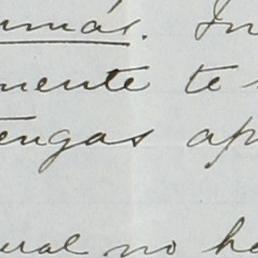 umás. In
mente te
tengas ap
ural no ha